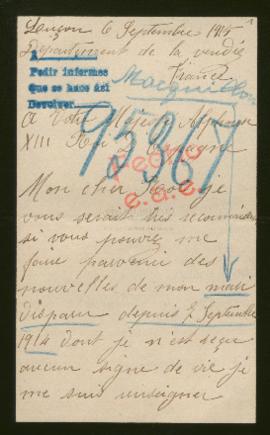 Luçon 6 Septembre 1915
Departement de la vendée
France
A
Pedir informes
Que se hace asi
Devolver
95967
Pedido
e.a.e.
A Votre Majesté Alphonse
XIII Roi d'Espagne
Mon cher Roi je
vous serait très
si vous pouviez me
faire parvenir des
nouvelles de mon mari
disparu depuis 7 Septembre
1914 dont je n'est reçu
aucun signe de vie je
me suis renseigner